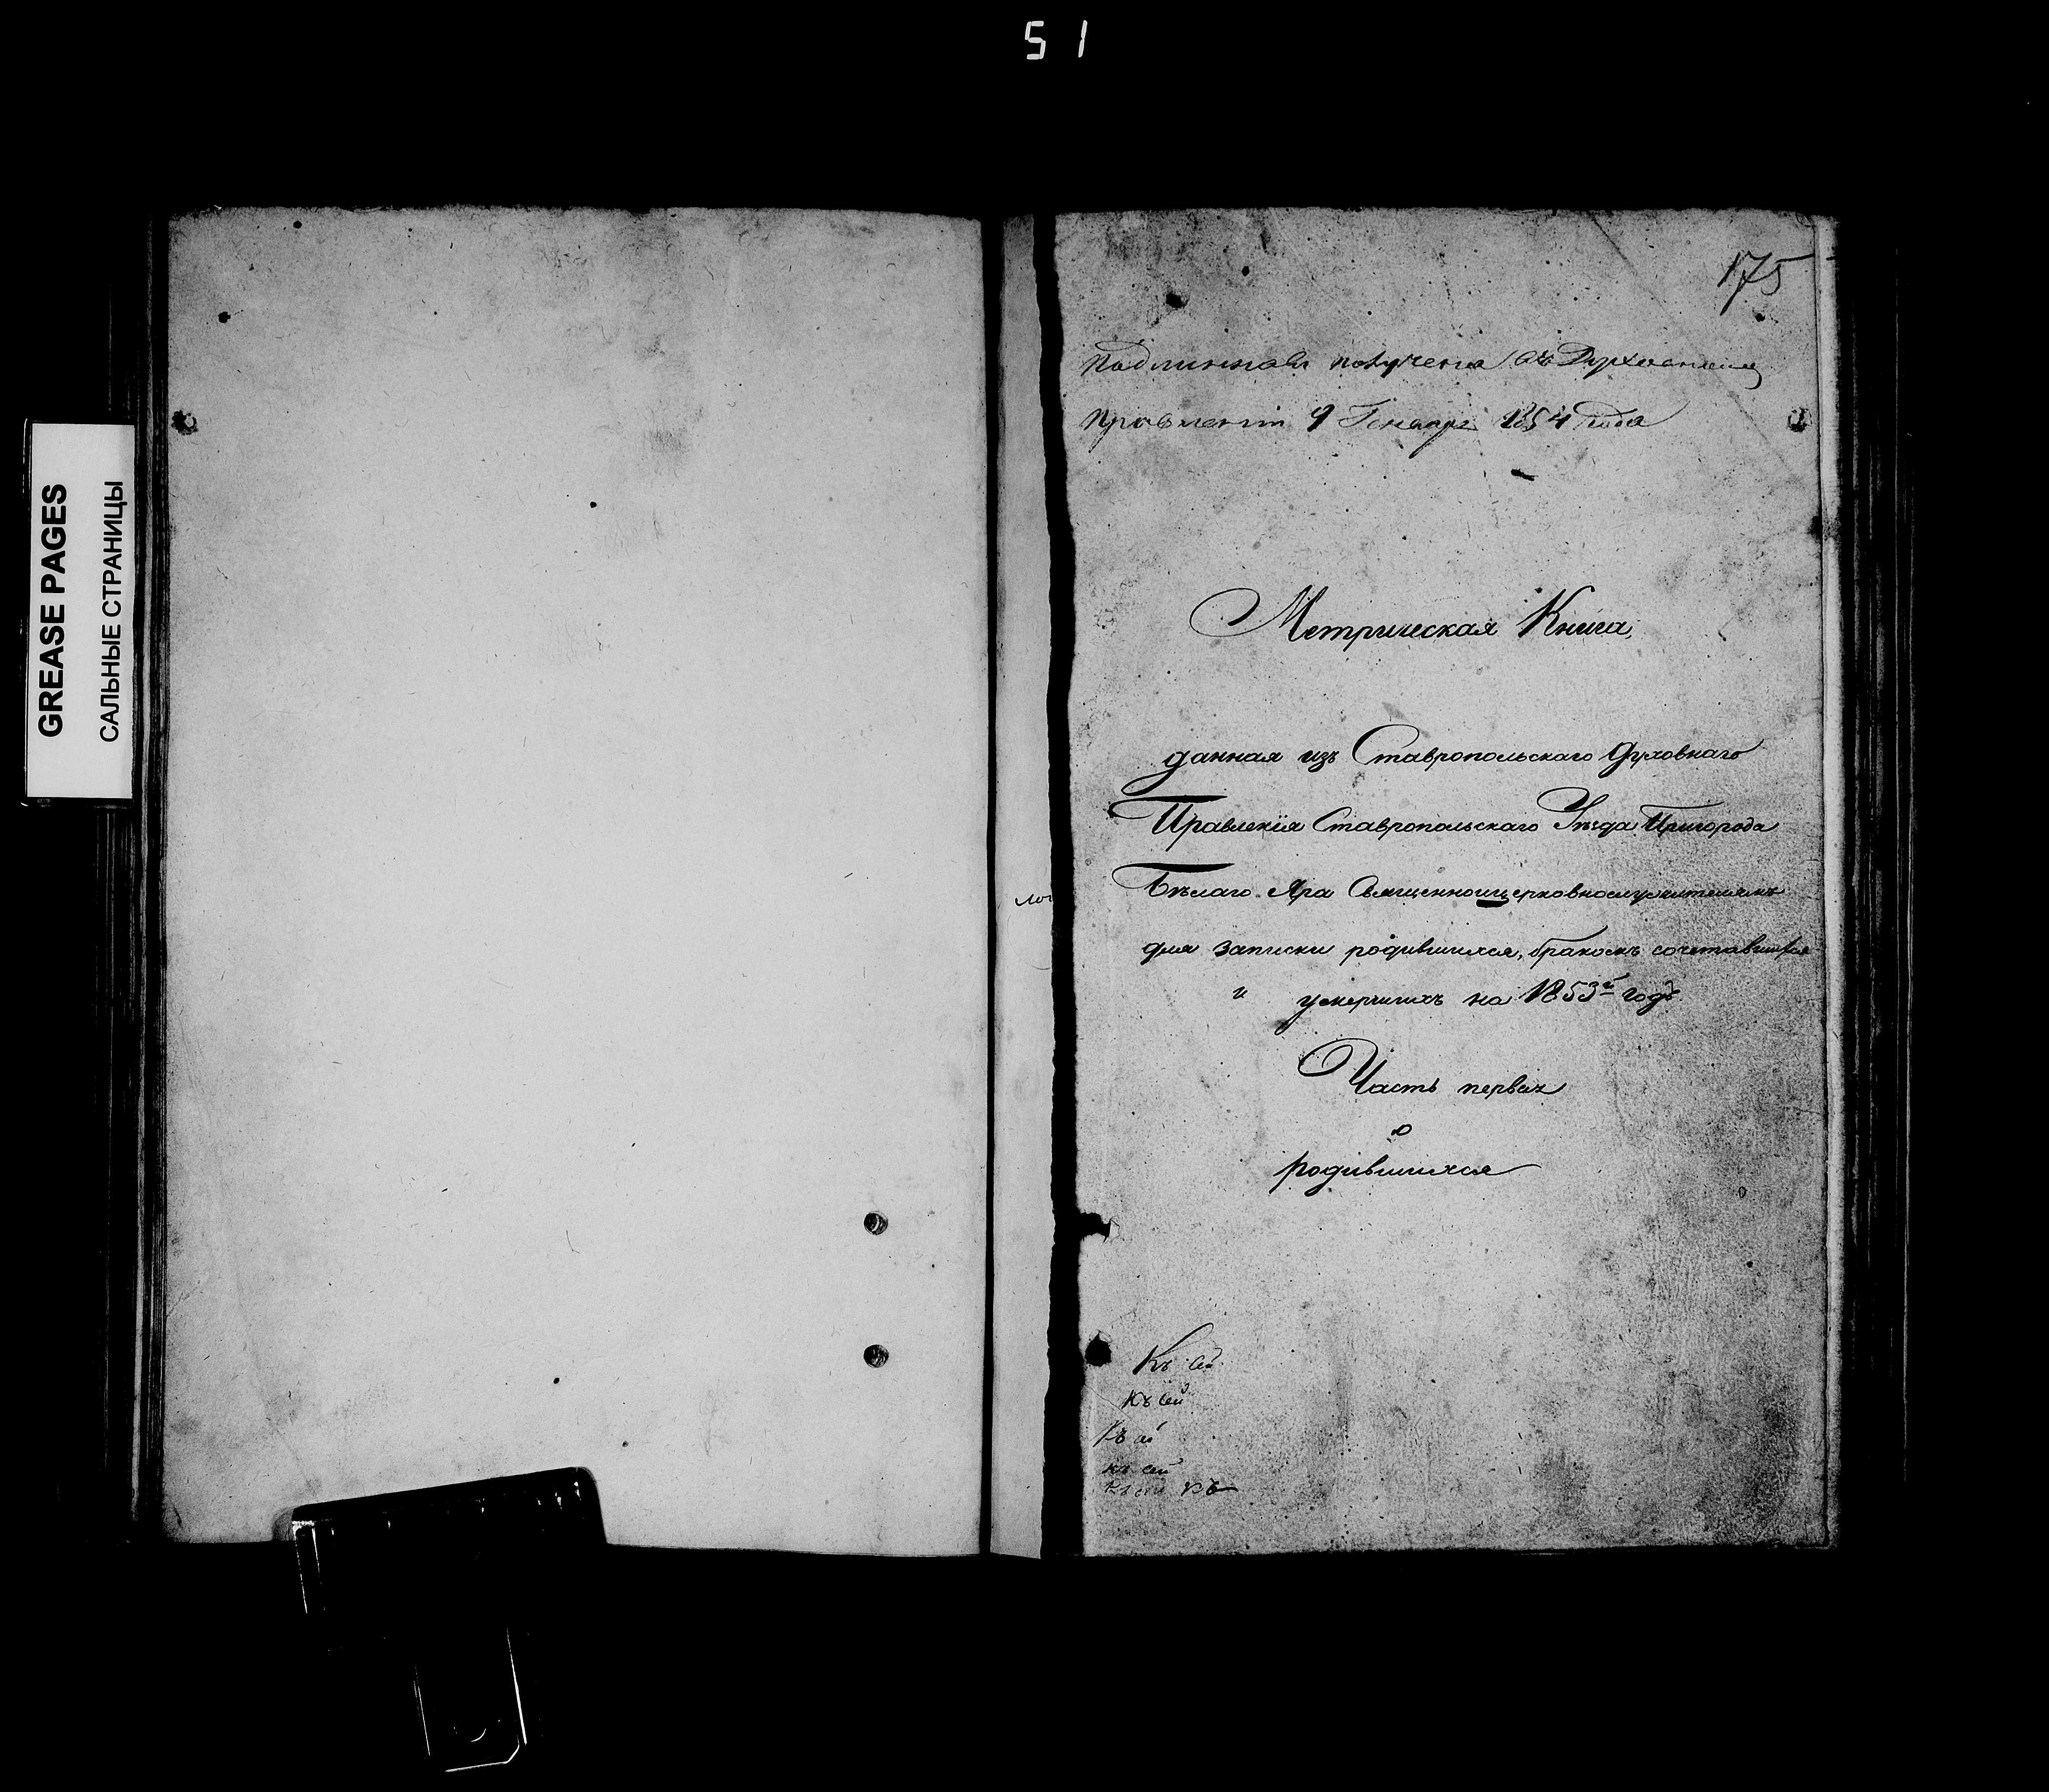 51
GREASE PAGES
САЛЬНЫЕ СТРАНИЦЫ
175
Подлинная получена въ Духовномъ
Правленіи 9 Генваря 1854 года
Метрическая Книга,
данная изъ Ставропольскаго Духовнаго
Правленія Ставропольскаго Уѣзда Пригорода
Бѣлаго Яра Священноицерковнослужителямъ
для записки родившихся, бракомъ сочетавшихся
и умершихъ на 1853й годъ.
Часть первая
о
родившихся
Къ сей
Къ сей
Къ сей
къ сей
Къ сей къ